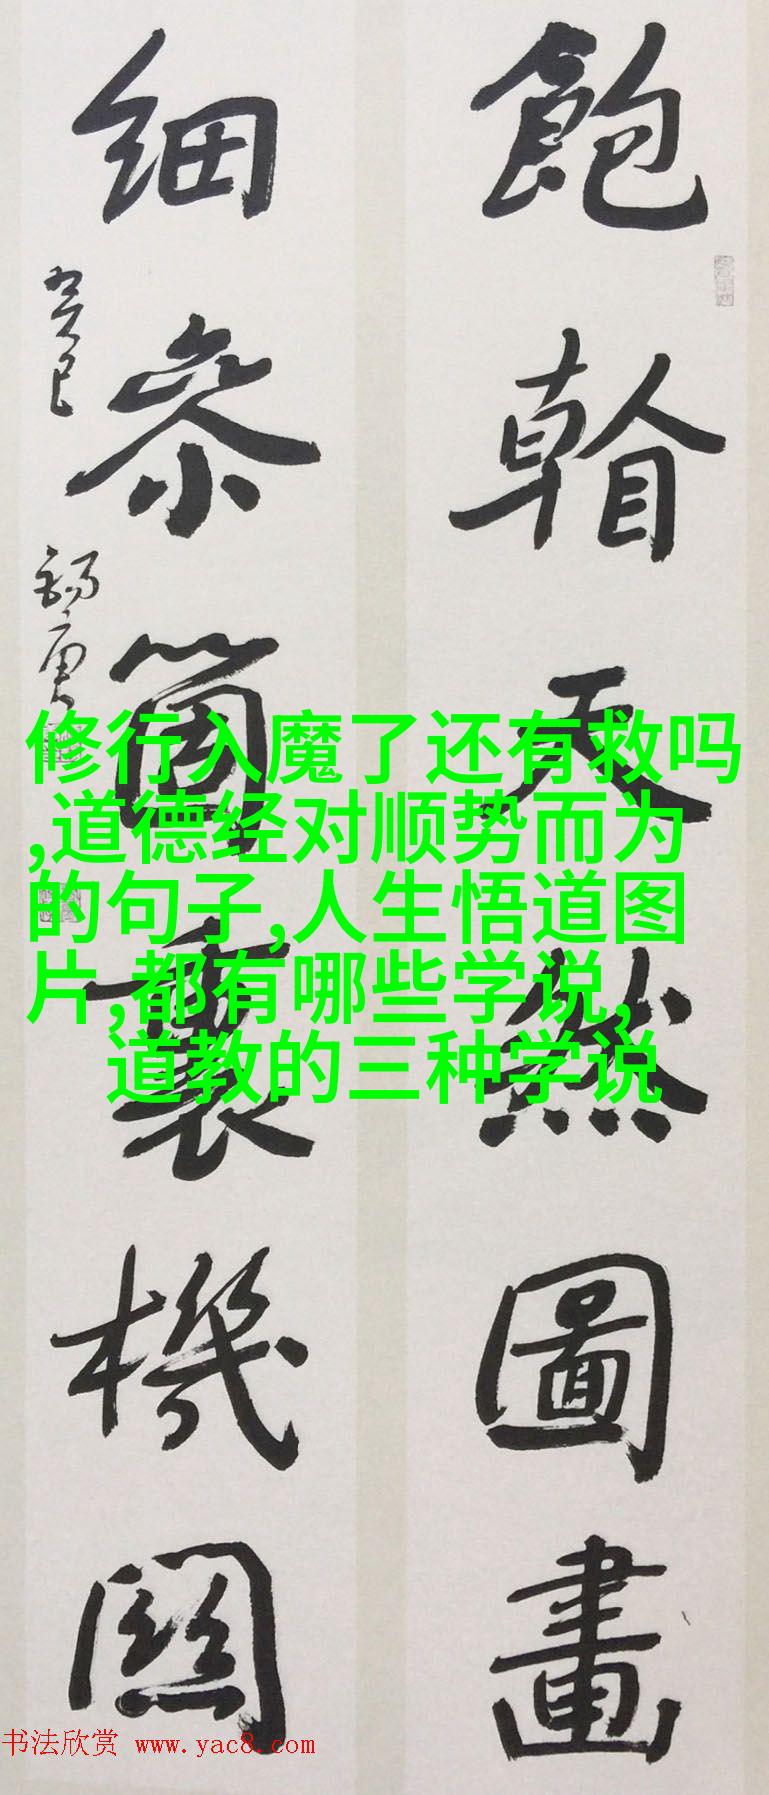 飽看天然圖畫
細參箇裏機關
癸巳
錫庚
修行入魔了还有救吗
,道德经对顺势而为
的句子,人生悟道图
片,都有哪些学说,
道教的三种学说
书法欣赏 www.yac8.com